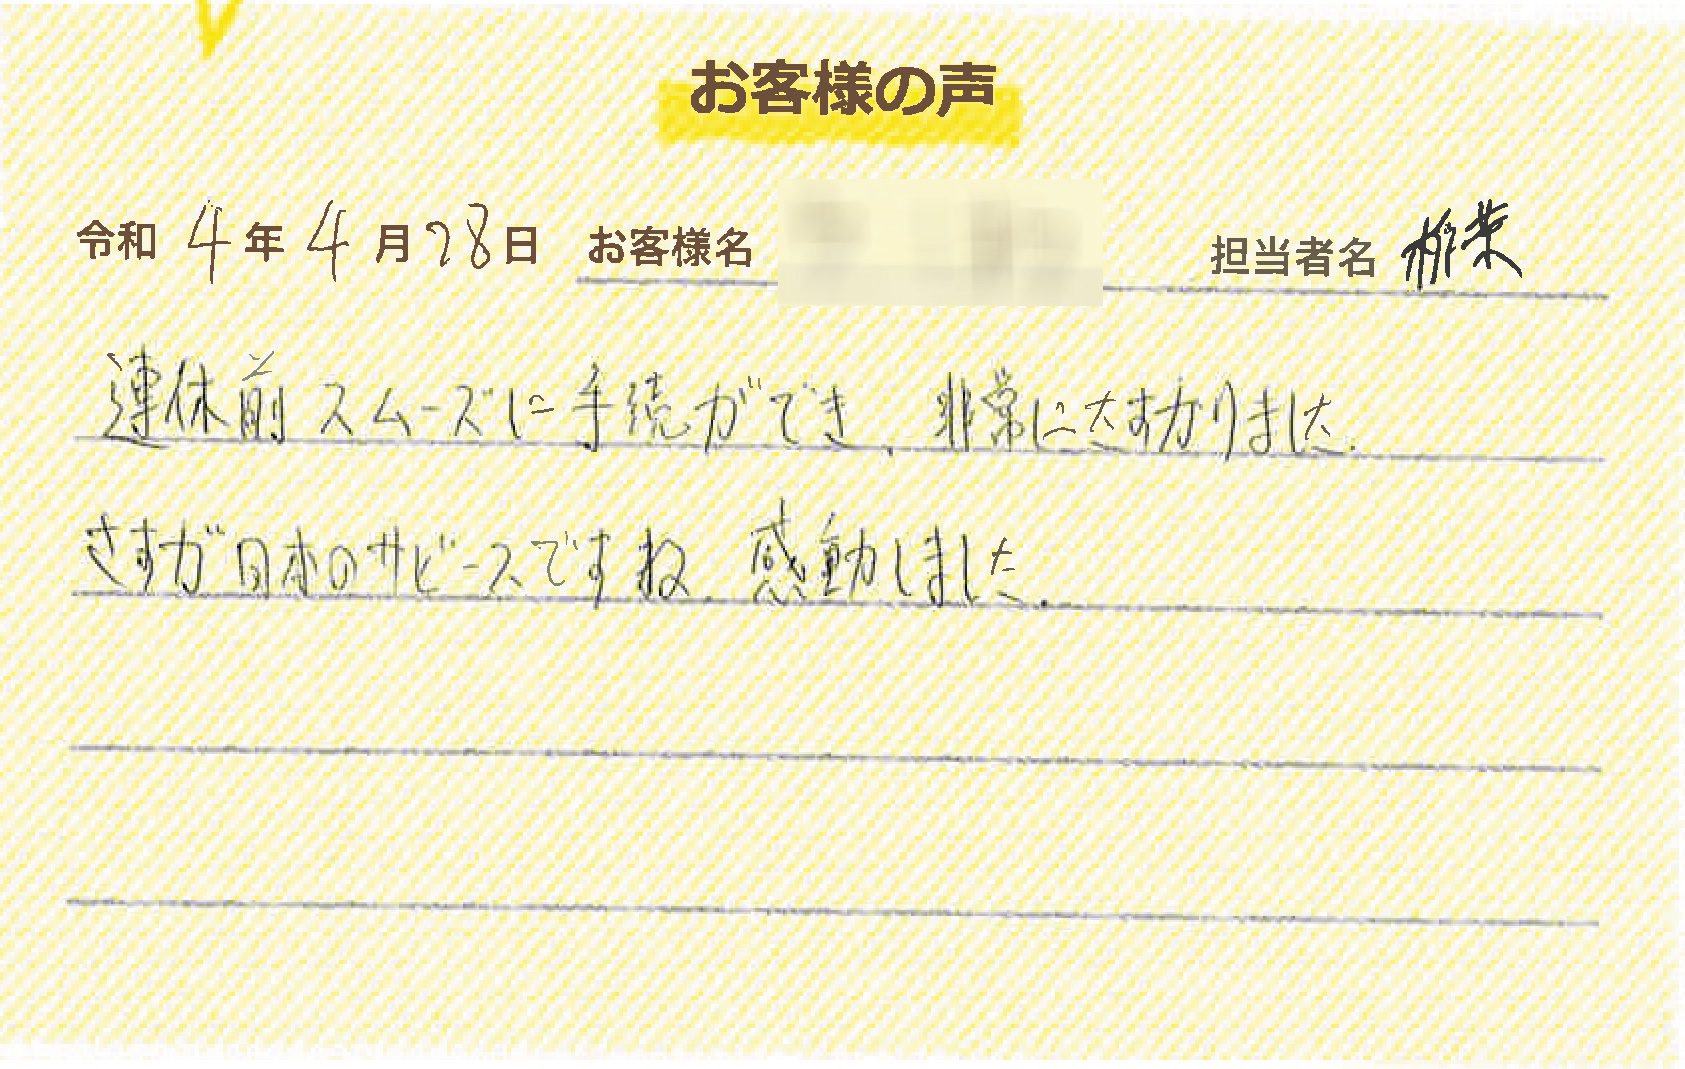 お客様の声
令和 4年 4月 28日 お客様名 担当者名
連休前スムーズに手続ができ、非常にたすかりました.
さすが日本のサビースですね. 感動しました.